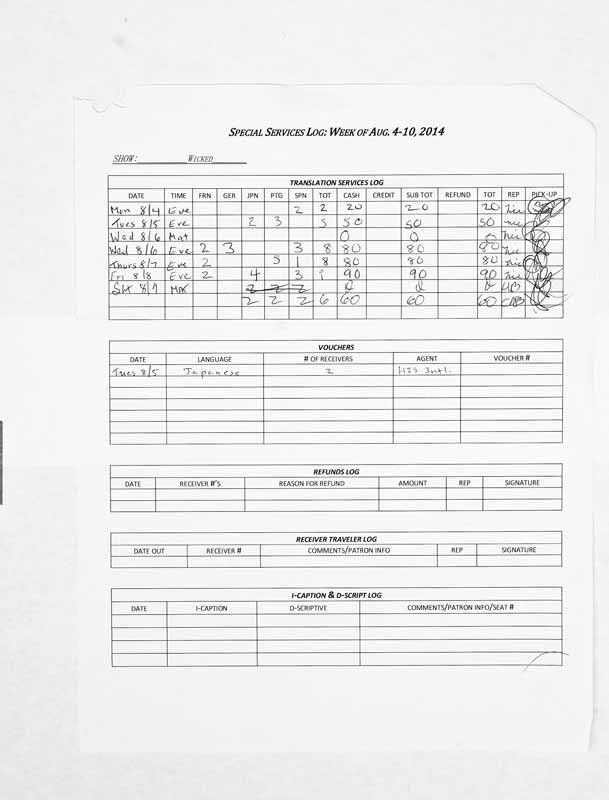 SPECIAL SERVICES LOG: WEEK OF AUG. 4-10, 2014
SHOW: WICKED
TRANSLATION SERVICES LOG
DATE TIME FRN GER JPN PTG SPN TOT CASH CREDIT SUB TOT REFUND TOT REP PICK-UP
Mon 8/4 Eve 2 2 20 20 20
Tues 8/5 Eve 2 3 5 50 50 50
Wed 8/6 Mat 0 0 0
Wed 8/6 Eve 2 3 3 8 80 80 80
Thurs 8/7 Eve 2 5 1 8 80 80 80
Fri 8/8 Eve 2 4 3 9 90 90 90
Sat 8/9 Mat 2 2 2 0 0 0
2 2 2 6 60 60 60
VOUCHERS
DATE LANGUAGE # OF RECEIVERS AGENT VOUCHER #
Tues 8/5 Japanese 2 HIS Intl.
REFUNDS LOG
DATE RECEIVER #'S REASON FOR REFUND AMOUNT REP SIGNATURE
RECEIVER TRAVELER LOG
DATE OUT RECEIVER # COMMENTS/PATRON INFO REP SIGNATURE
I-CAPTION & D-SCRIPT LOG
DATE I-CAPTION D-SCRIPTIVE COMMENTS/PATRON INFO/SEAT #